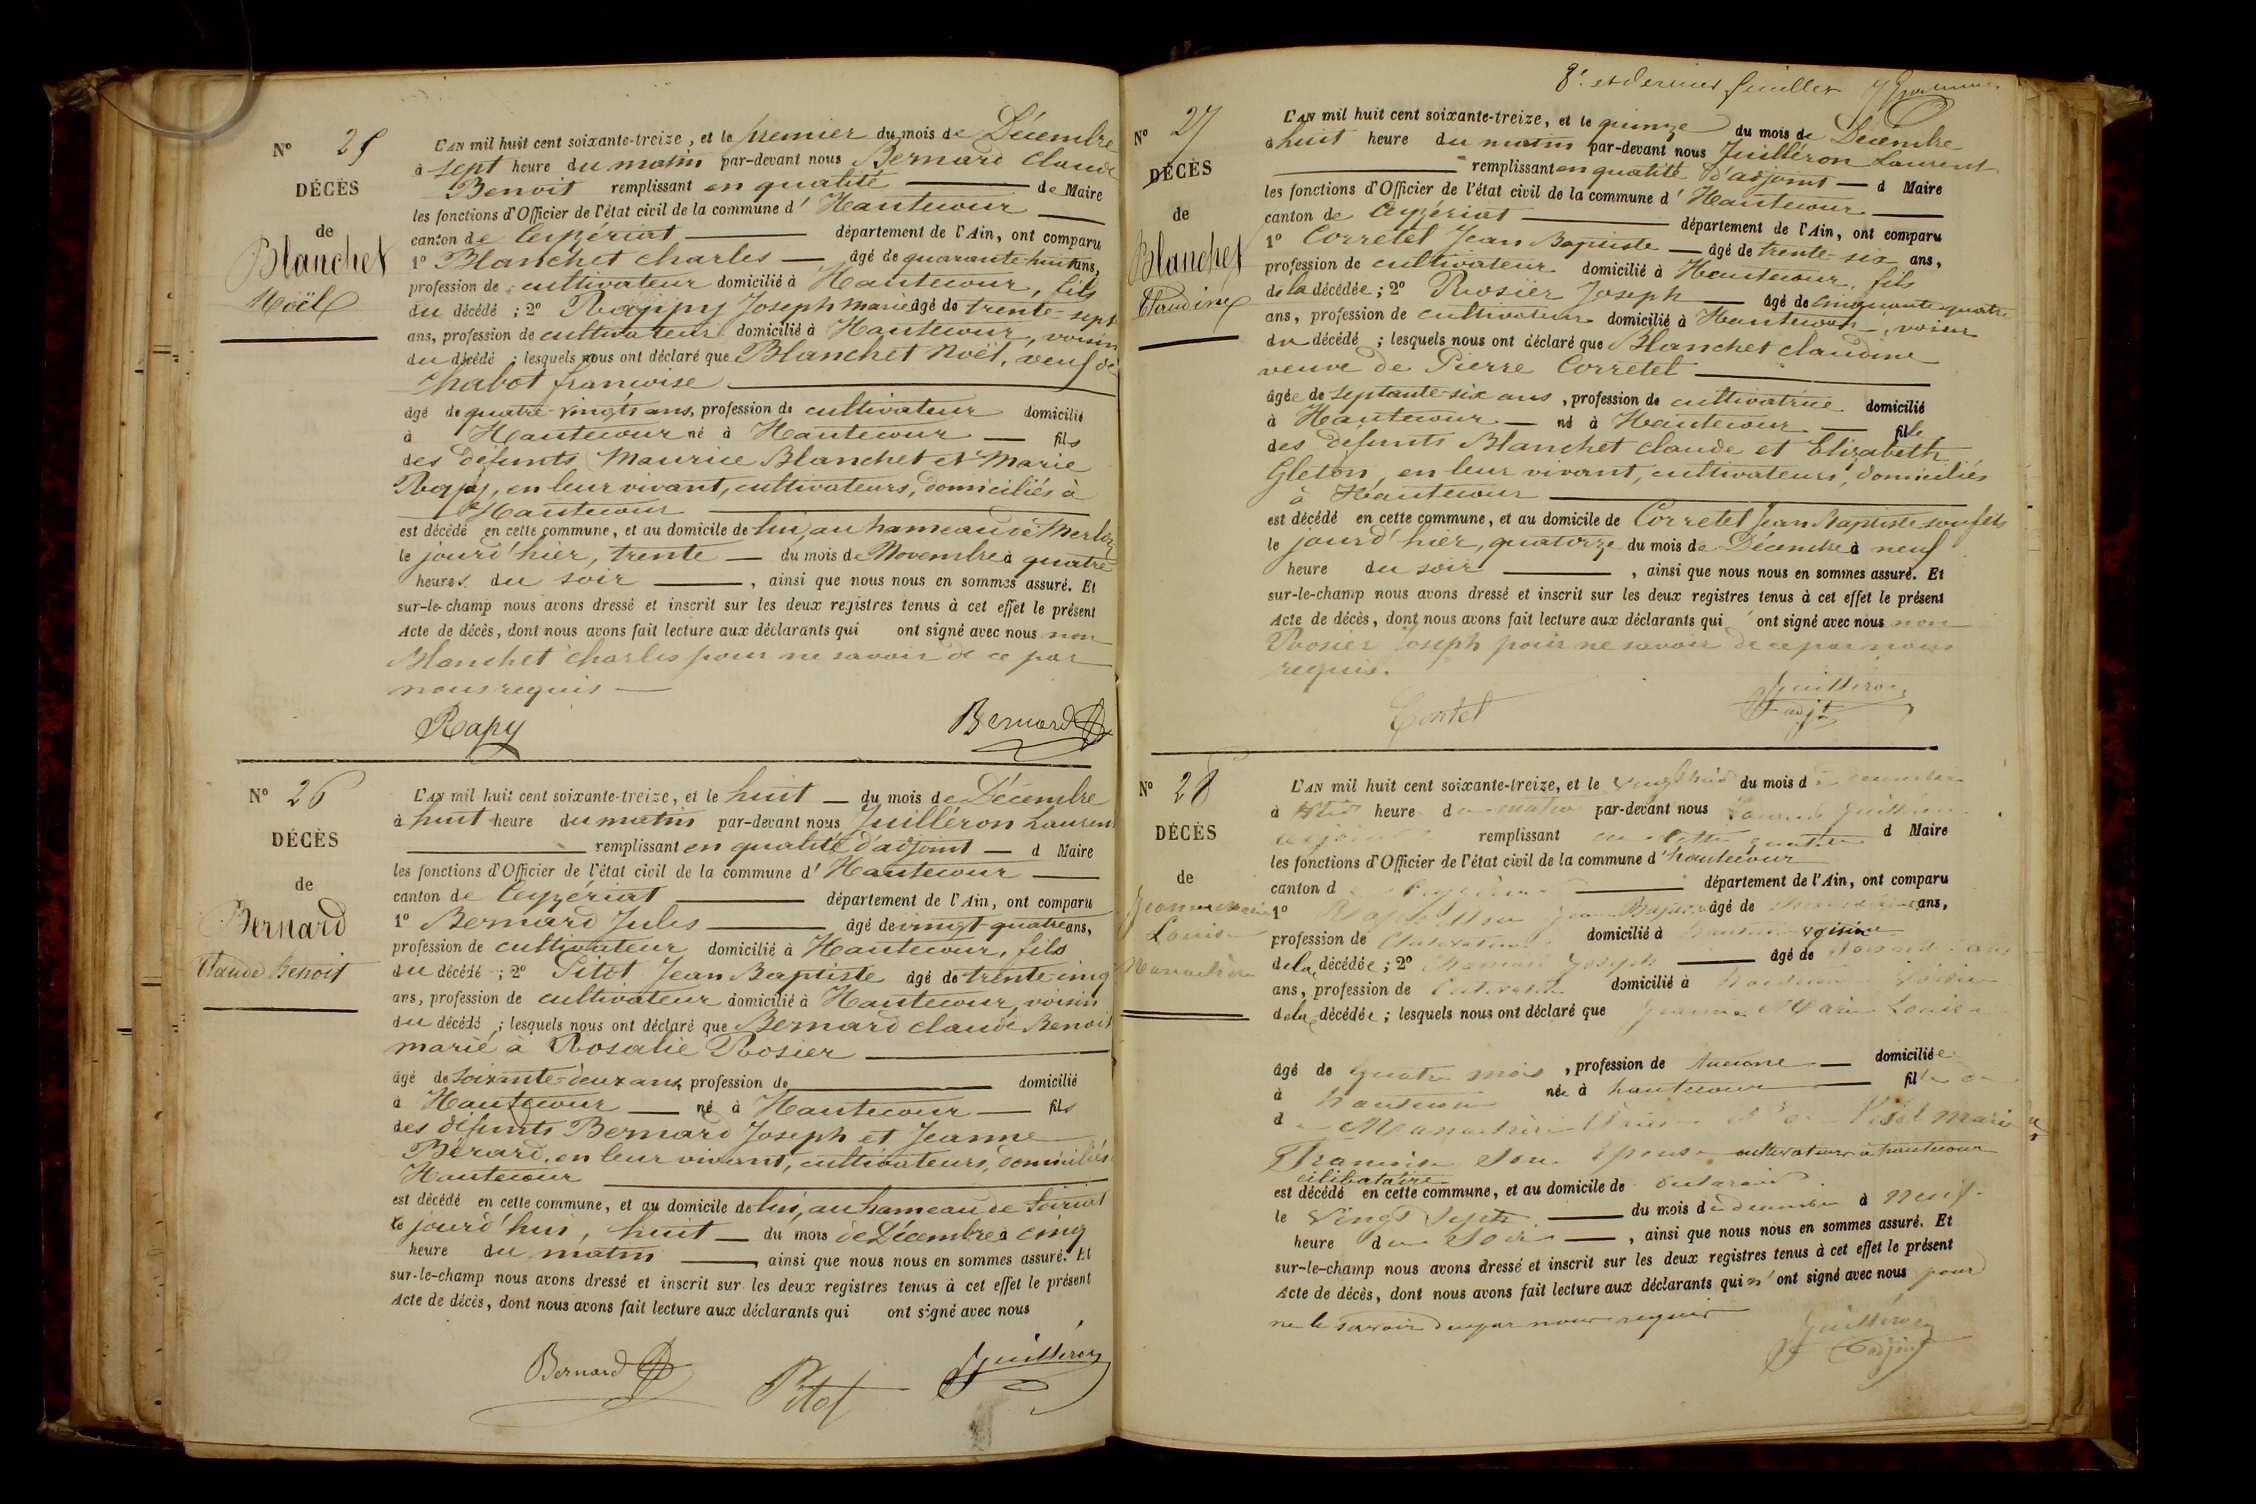 N° 25
DÉCÈS
de
Blanchet
Noël
L'AN mil huit cent soixante-treize, et le premier du mois de Décembre
à sept heure du matin par-devant nous Bernard Claude
Benoit remplissant en qualité de Maire
les fonctions d'Officier de l'état civil de la commune d'Hautecour
canton de Ceyzériat département de l'Ain, ont comparu
1° Blanchet Charles âgé de quarante-huit ans,
profession de cultivateur domicilié à Hautecour, fils
du décédé ; 2° Joseph marie âgé de trente-sept
ans, profession de cultivateur domicilié à Hautecour, voisin
du décédé ; lesquels nous ont déclaré que Blanchet Noël, veuf de
Chabot françoise
âgé de quatre-vingts ans, profession de cultivateur domicilié
à Hautecour né à Hautecour fils
des défunts Maurice Blanchet et Marie
en leur vivant, cultivateurs, domiciliés à
Hautecour
est décédé en cette commune, et au domicile de lui, au hameau de
le jourd'hier, trente du mois de Novembre à quatre
heures du soir, ainsi que nous nous en sommes assuré. Et
sur-le-champ nous avons dressé et inscrit sur les deux registres tenus à cet effet le présent
Acte de décès, dont nous avons fait lecture aux déclarants qui ont signé avec nous non
Blanchet Charles pour ne savoir de ce par
nous requis
Rapy Bernard
N° 26
DÉCÈS
de
Bernard
Claude Benoit
L'AN mil huit cent soixante-treize, et le huit du mois de Décembre
à huit heure du matin par-devant nous Juilléron Laurent
remplissant en qualité d'adjoint d Maire
les fonctions d'Officier de l'état civil de la commune d'Hautecour
canton de Ceyzériat département de l'Ain, ont comparu
1° Bernard Jules âgé de vingt-quatre ans,
profession de cultivateur domicilié à Hautecour, fils
du décédé ; 2° Pitot Jean Baptiste âgé de trente-cinq
ans, profession de cultivateur domicilié à Hautecour, voisin
du décédé ; lesquels nous ont déclaré que Bernard Claude Benoit
marié à Rosalie Rosier
âgé de soixante-deux ans, profession de domicilié
à Hautecour né à Hautecour fils
des défunts Bernard Joseph et Jeanne
Bérard, en leur vivant, cultivateurs, domiciliés
Hautecour
est décédé en cette commune, et au domicile de lui, au hameau de
le jourd'hui, huit du mois de Décembre à cinq
heure du matin, ainsi que nous nous en sommes assuré. Et
sur-le-champ nous avons dressé et inscrit sur les deux registres tenus à cet effet le présent
Acte de décès, dont nous avons fait lecture aux déclarants qui ont signé avec nous
Bernard Pitot Juilléron
8e et dernier feuillet
N° 27
DÉCÈS
de
Blanchet
Claudine
L'AN mil huit cent soixante-treize, et le quinze du mois de Décembre
à huit heure du matin par-devant nous Juilléron Laurent
remplissant en qualité d'adjoint d Maire
les fonctions d'Officier de l'état civil de la commune d'Hautecour
canton de Ceyzériat département de l'Ain, ont comparu
1° Corretel Jean Baptiste âgé de trente-six ans,
profession de cultivateur domicilié à Hautecour, fils
de la décédée ; 2° Rosier Joseph âgé de cinquante-quatre
ans, profession de cultivateur domicilié à Hautecour, voisin
du décédé ; lesquels nous ont déclaré que Blanchet Claudine
veuve de Pierre Corretel
âgée de septante-six ans, profession de cultivatrice domicilié
à Hautecour né à Hautecour fille
des défunts Blanchet Claude et Elizabeth
Gleton, en leur vivant, cultivateurs, domiciliés
à Hautecour
est décédé en cette commune, et au domicile de Corretel Jean Baptiste son fils
le jourd'hier, quatorze du mois de Décembre à neuf
heure du soir, ainsi que nous nous en sommes assuré. Et
sur-le-champ nous avons dressé et inscrit sur les deux registres tenus à cet effet le présent
Acte de décès, dont nous avons fait lecture aux déclarants qui ont signé avec nous non
Rosier Joseph pour ne savoir de ce par nous
requis.
Juilléron
adjt
N° 28
DÉCÈS
de
Louise
L'AN mil huit cent soixante-treize, et le vingt huit du mois d
à heure du matin par-devant nous Laurent Juilléron
adjoint remplissant en cette qualité d Maire
les fonctions d'Officier de l'état civil de la commune d'hautecour
canton d département de l'Ain, ont comparu
1° Jean Baptiste âgé de ans,
profession de Cultivateur domicilié à voisin
de la décédée ; 2° Joseph âgé de
ans, profession de Cultivateur domicilié à
de la décédée ; lesquels nous ont déclaré que Jeanne Marie Louise
âgé de quatre mois, profession de Aucune domiciliée
à hautecour née à hautecour fille
d Marie
Françoise Son Epouse cultivateurs a hautecour
célibataire
est décédé en cette commune, et au domicile de
le vingt Sept du mois de décembre à neuf
heure du Soir, ainsi que nous nous en sommes assuré. Et
sur-le-champ nous avons dressé et inscrit sur les deux registres tenus à cet effet le présent
Acte de décès, dont nous avons fait lecture aux déclarants qui n'ont signé avec nous pour
ne le savoir par nous requis
Juilléron
adjoint